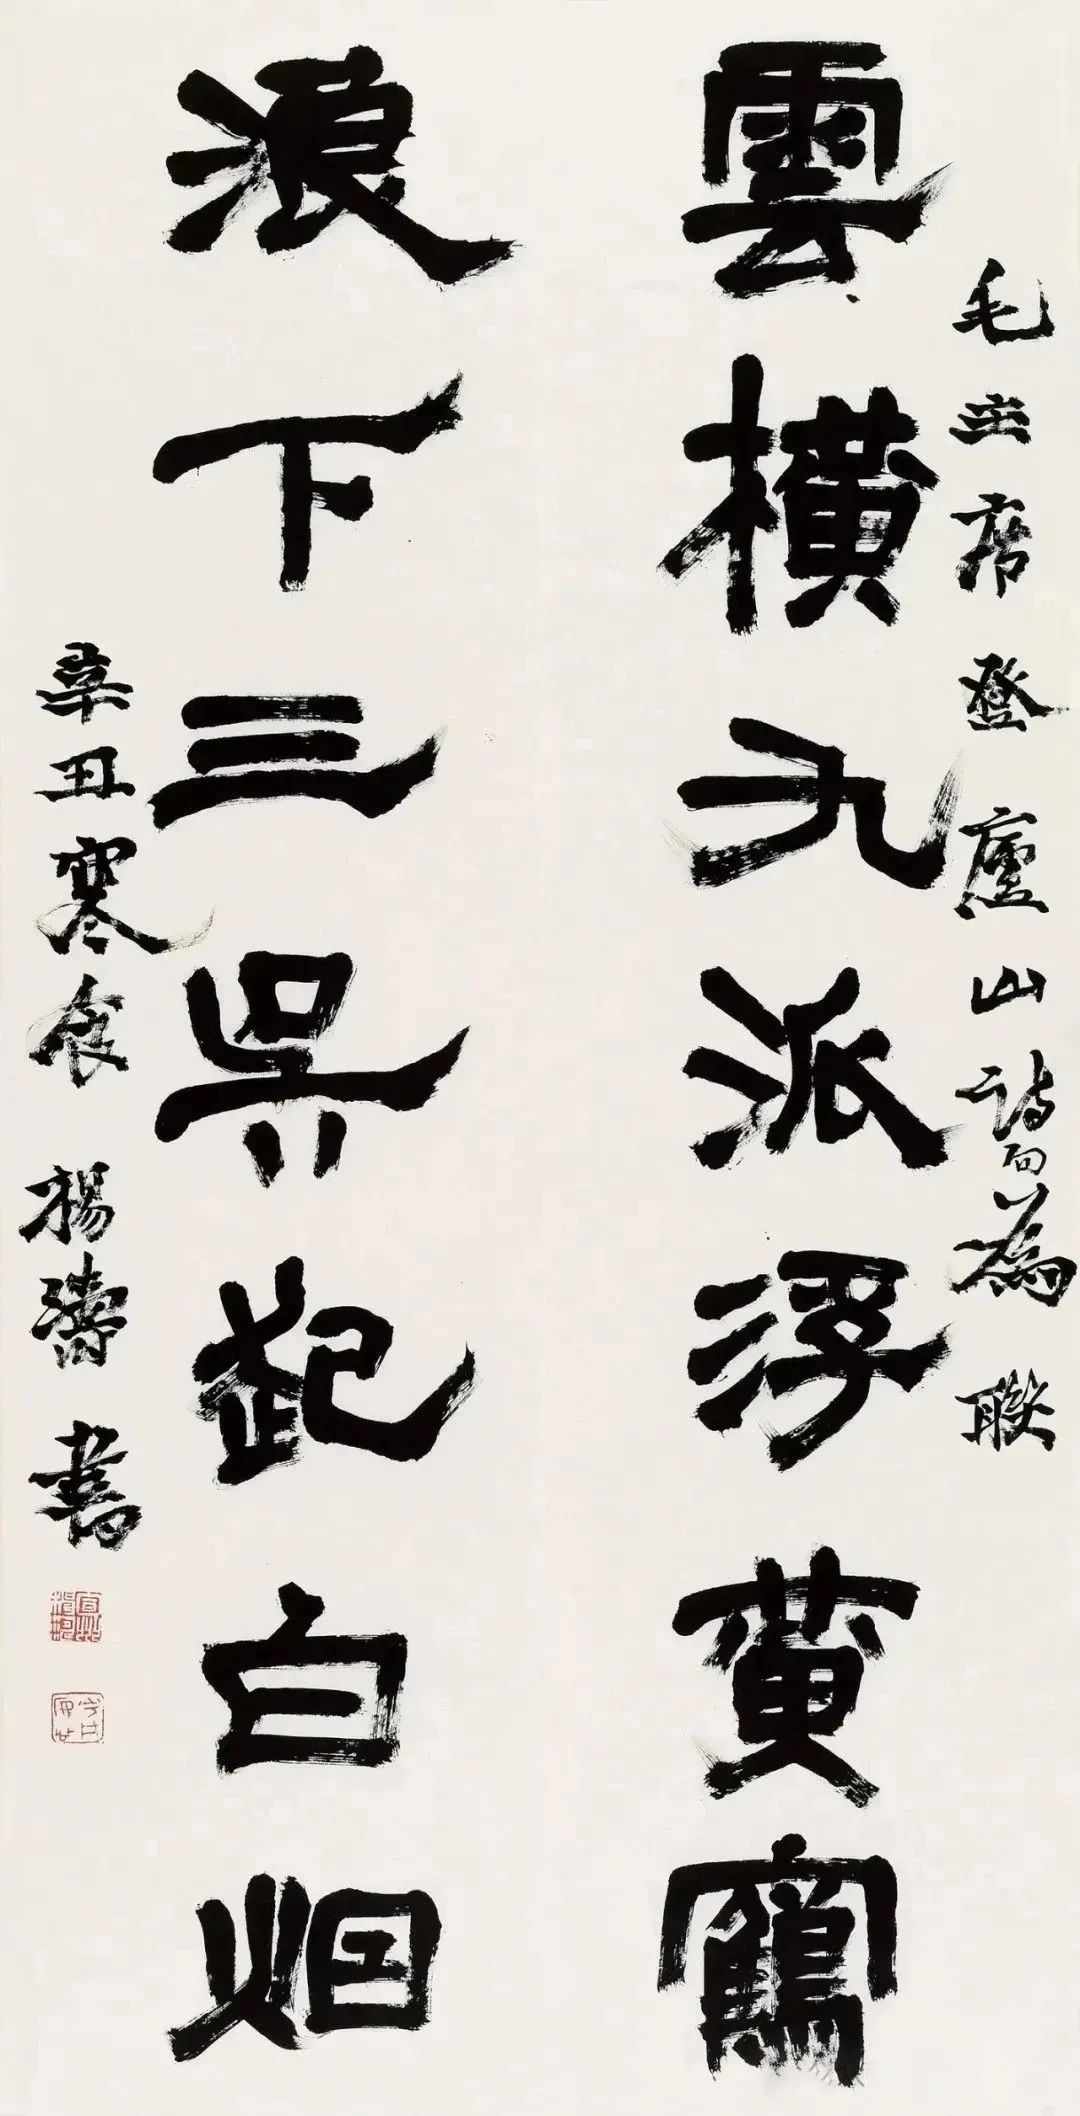 毛主席登廬山詩句為聯
雲橫九派浮黃鶴
浪下三吳起白烟
辛丑寒食 楊濤書